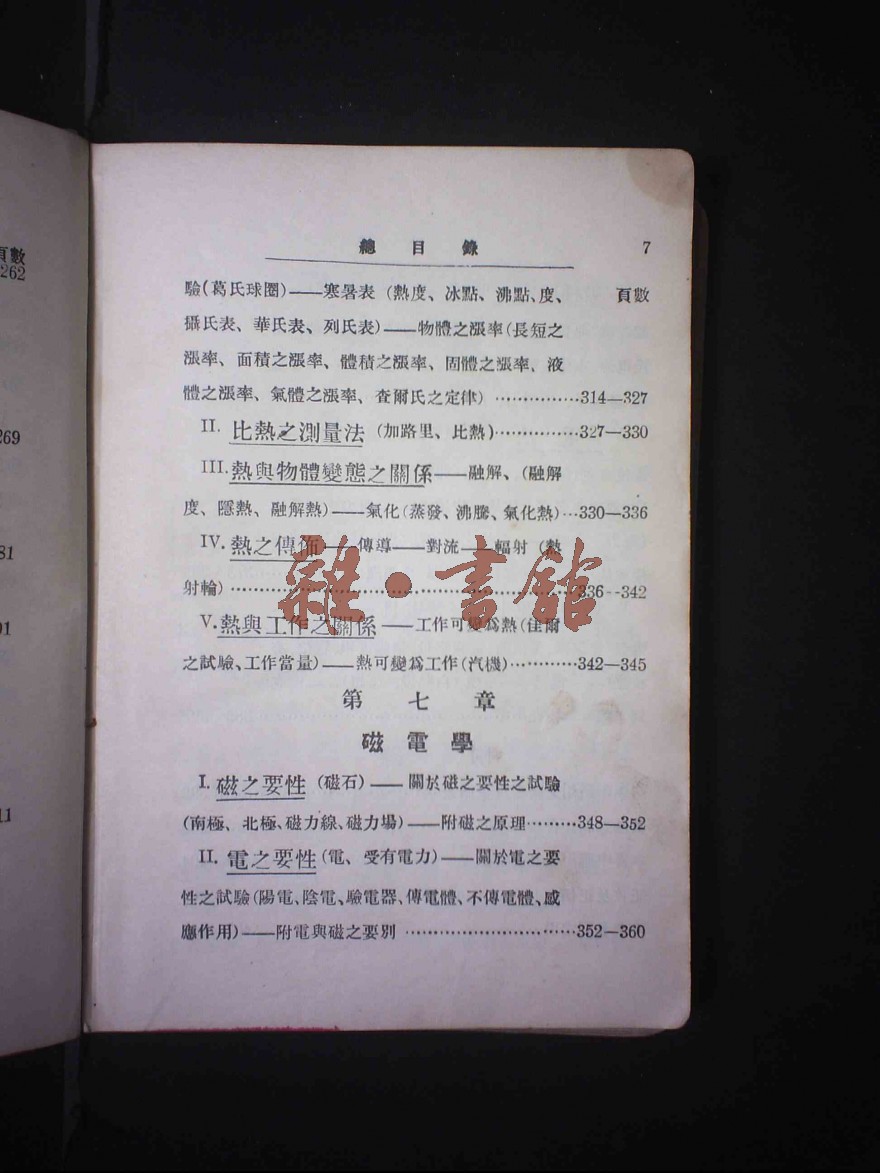 頁數
262
269
81
91
11
總目錄 7
驗(葛氏球圈)——寒暑表 (熱度、冰點、沸點、度、 頁數
攝氏表、華氏表、列氏表)——物體之漲率(長短之
漲率、面積之漲率、體積之漲率、固體之漲率、液
體之漲率、氣體之漲率、查爾氏之定律) ……………314—327
II. 比熱之測量法 (加路里、比熱)……………327—330
III.熱與物體變態之關係——融解、(融解
度、隱熱、融解熱)——氣化(蒸發、沸騰、氣化熱)…330—336
IV.熱之傳佈——傳導——對流——輻射 (熱
射輪)……………………………………………336--342
V.熱與工作之關係——工作可變爲熱(佳爾
之試驗、工作當量)——熱可變爲工作(汽機)…………342—345
第七章
磁電學
I. 磁之要性 (磁石)——關於磁之要性之試驗
(南極、北極、磁力線、磁力場)——附磁之原理………348—352
II. 電之要性(電、受有電力)——關於電之要
性之試驗(陽電、陰電、驗電器、傳電體、不傳電體、感
應作用)——附電與磁之要別 …………………………352—360
雜·書館